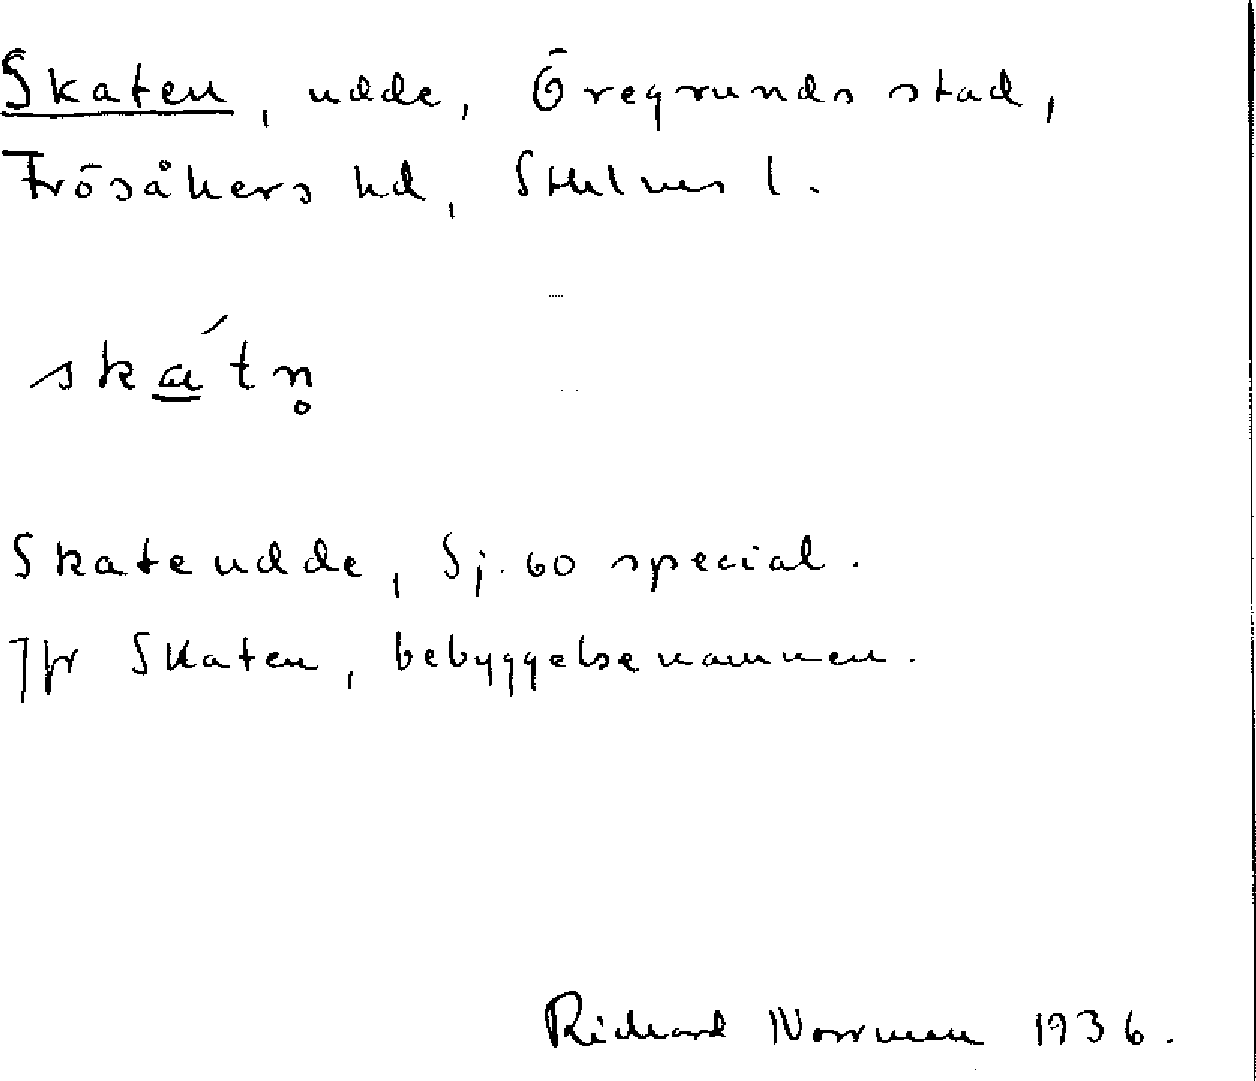 Skaten, udde, Öregrunds stad,
Frösåkers hd, Sthlms l.
ska̲´tn̥
Skateudde, Sj. 60 special.
Jfr Skaten, bebyggelsenamnen.
Richard Norrman 1936.